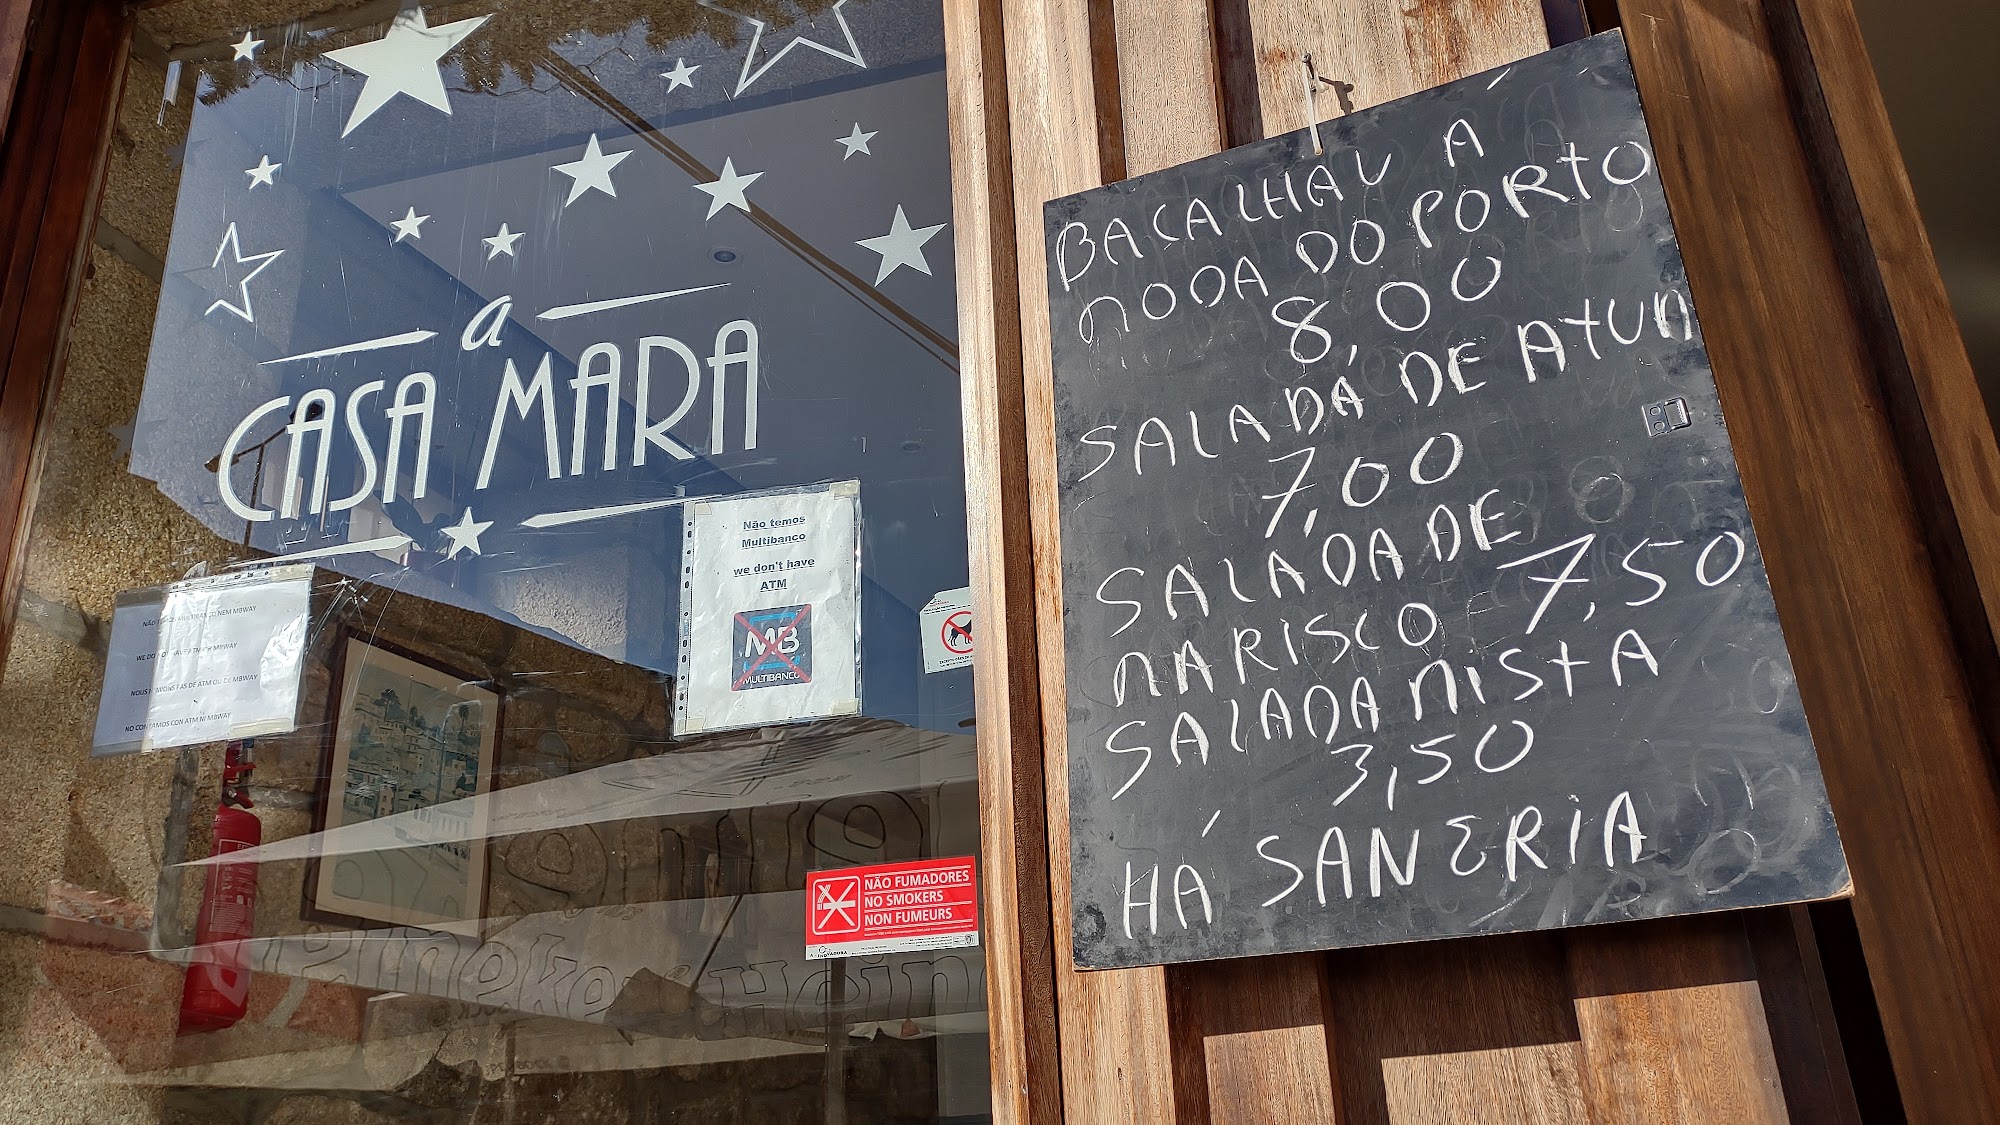 a
CASA MARA
NÃO TEMOS MULTIBANCO NEM MBWAY
WE DO NOT HAVE ATM OR MBWAY
NOUS N'AVONS PAS DE ATM OU DE MBWAY
NO CONTAMOS CON ATM NI MBWAY
Não temos
Multibanco
we don't have
ATM
MB
MULTIBANCO
NÃO FUMADORES
NO SMOKERS
NON FUMEURS
BACALHAU Á
MODA DO PORTO
8,00
SALADA DE ATUM
7,00
SALADA DE
MARISCO 7,50
SALADA MISTA
3,50
HÁ SANGRIA